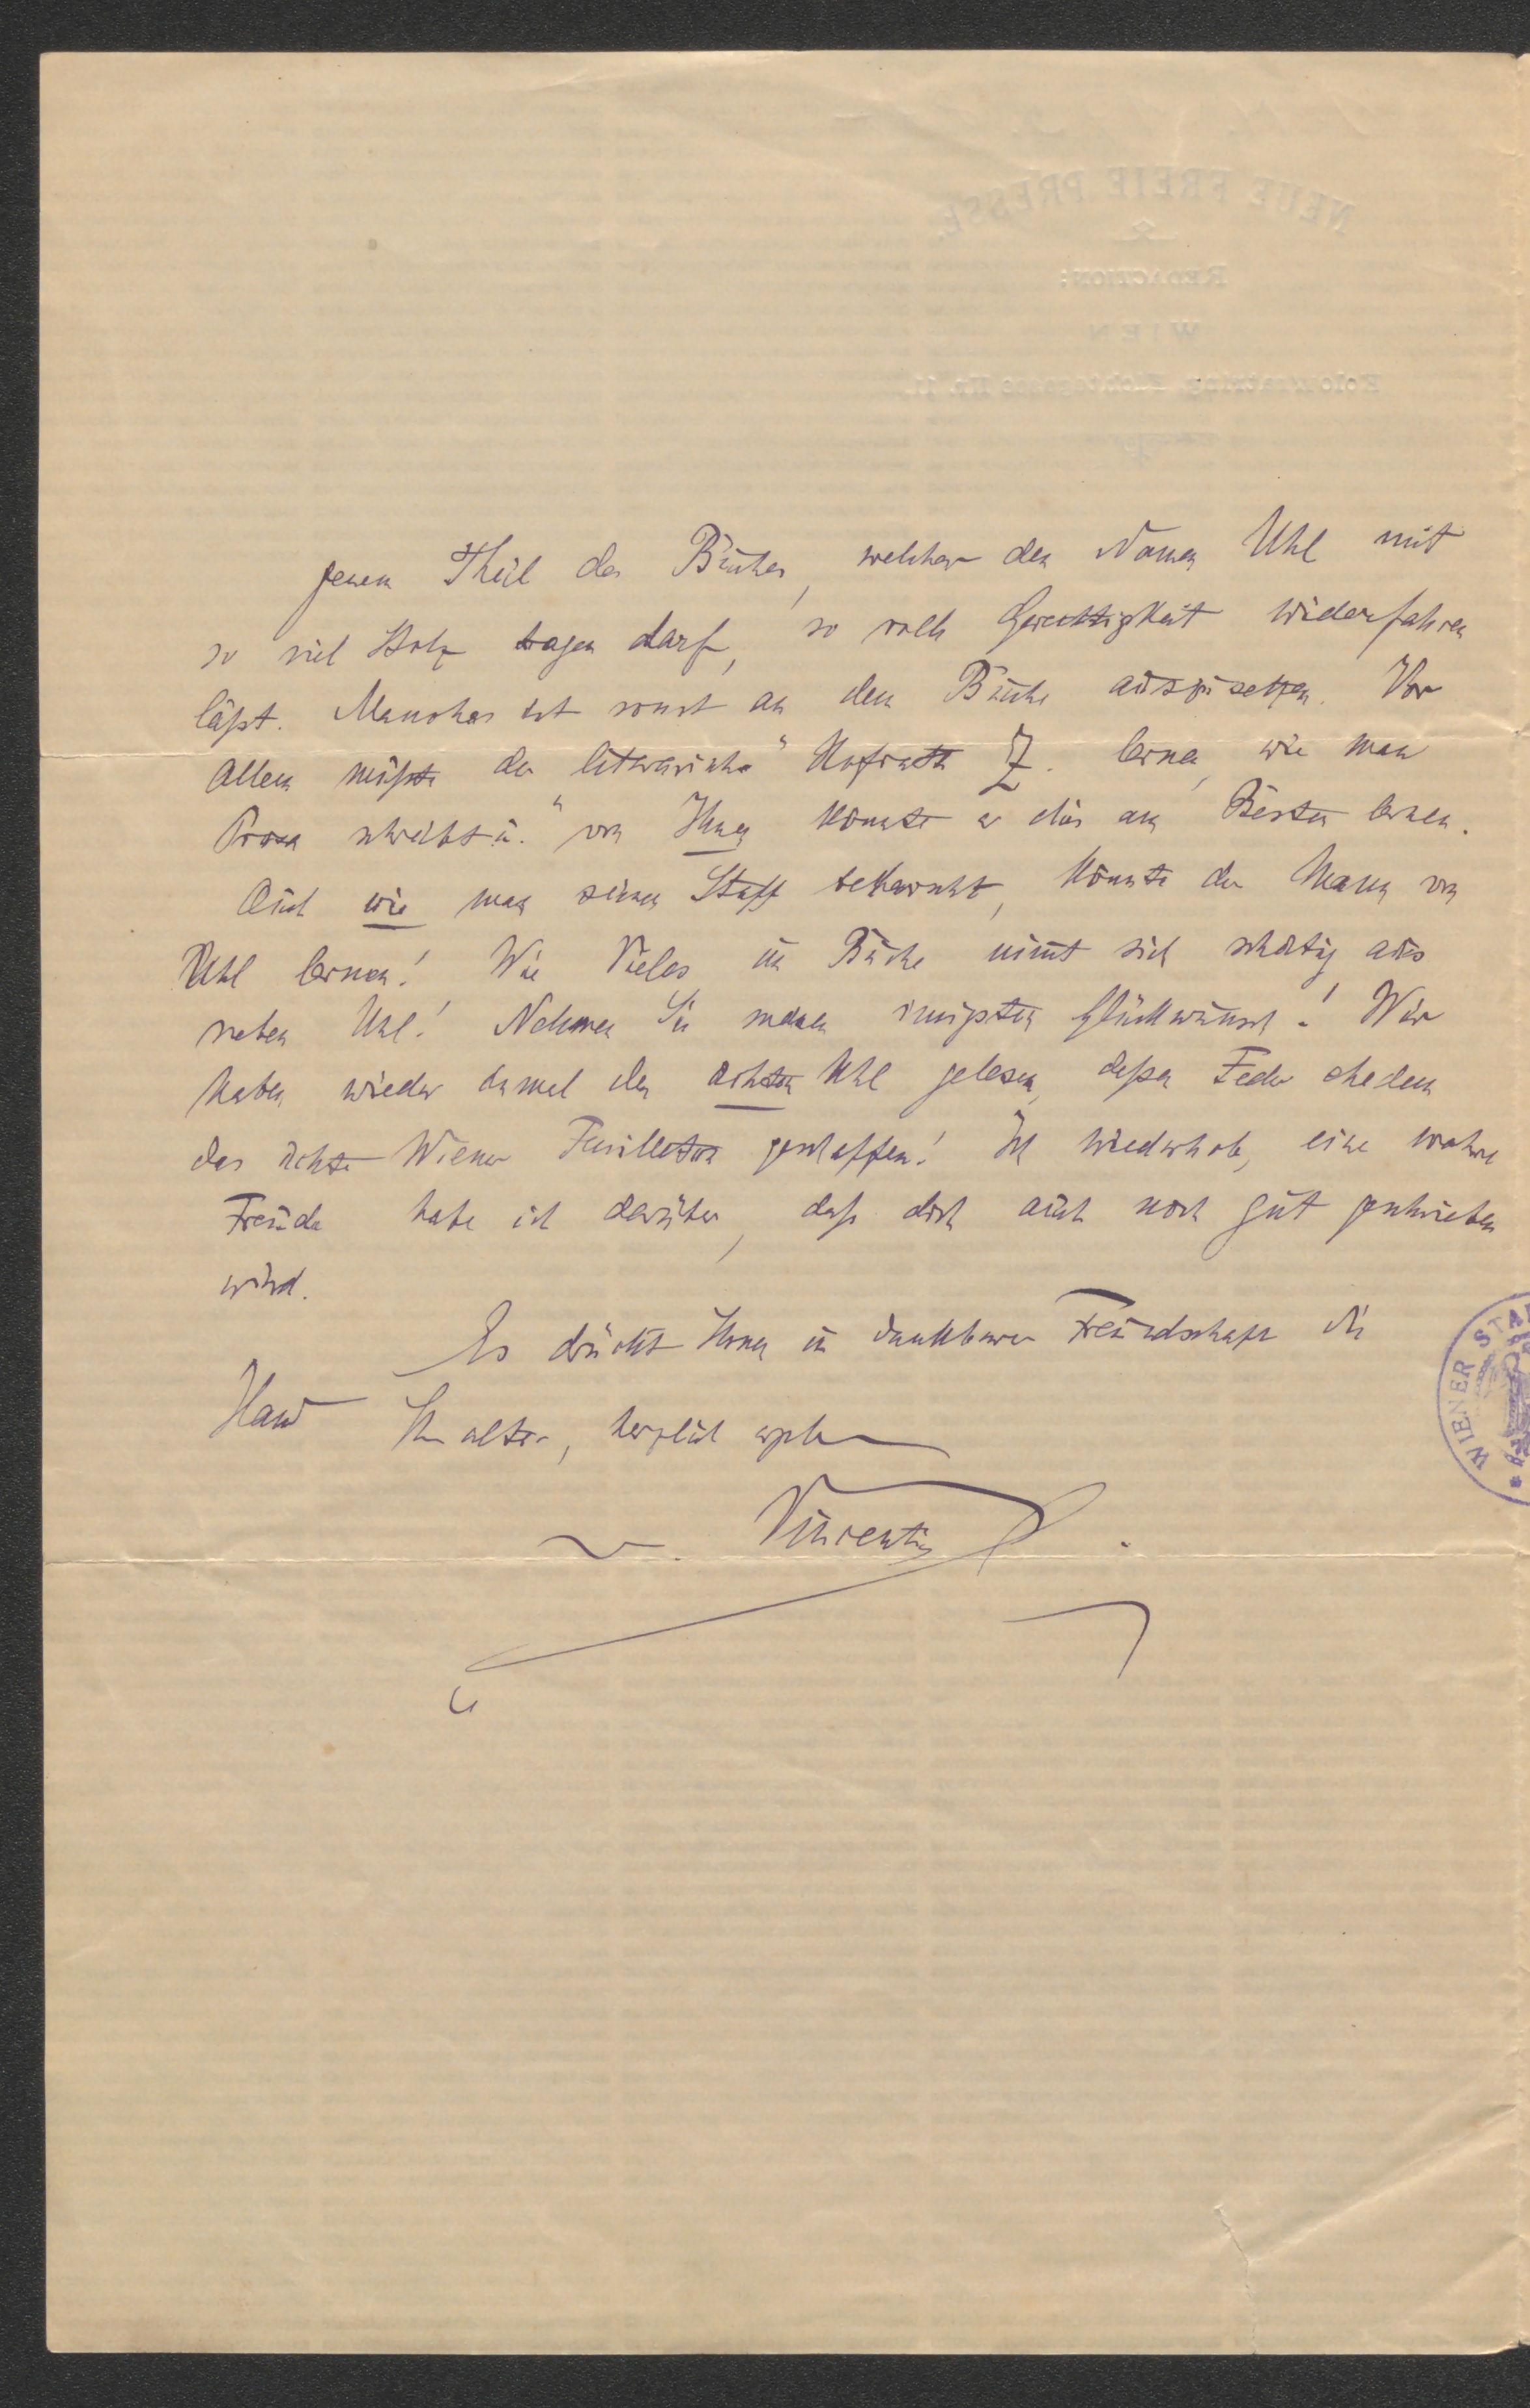 jenem Theil des Buches, welcher den Namen Uhl mit
so viel Stolz tragen darf, so volle Gerechtigkeit widerfahren
läßt. Manches ist sonst an dem Buche auszusetzen. Vor
Allem müßte der literarische Hofrath Z. lernen, wie man
Prosa schreibt u. von Ihnen könnte er dies am Besten lernen.
Auch wie man seinen Stoff beherrscht, könnte der Mann von
Uhl lernen! Wie Vieles im Buche nimt sich schattig aus
neben Uhl! Nehmen Sie meinen innigsten Glückwunsch! Wir
haben wieder einmal den echten Uhl gelesen, dessen Feder ehedem
das echte Wiener Feuilleton geschaffen! Ich wiederhole, eine wahre
Freude habe ich darüber, daß doch auch noch gut geschrieben
wird.
Es drückt Ihnen in dankbarer Freundschaft die
Hand Ihr alter, herzlich ergebener
v. Vincenti.
WIENER STA
NEUE FREIE PRESSE.
REDACTION:
WIEN
Kolowratring, Fichtegasse Nr. 11.